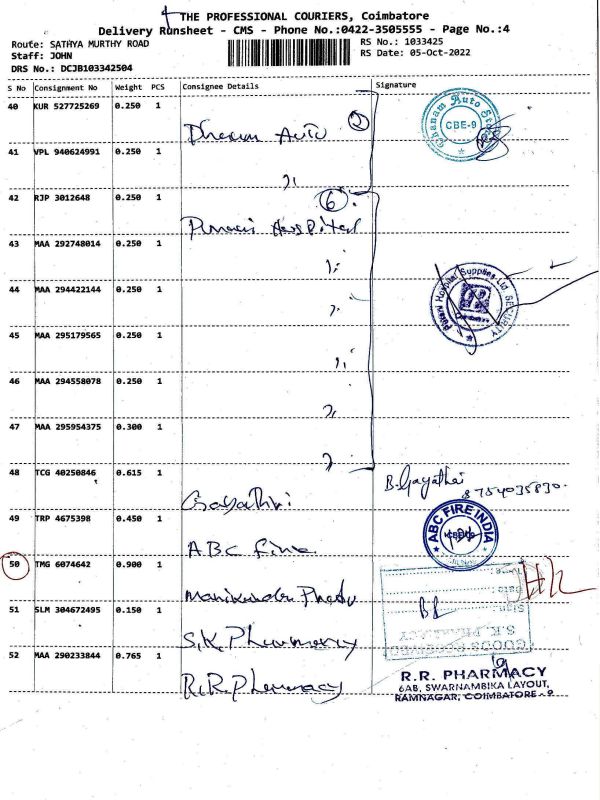 THE PROFESSIONAL COURIERS, Coimbatore
Delivery Runsheet - CMS - Phone No.:0422-3505555 - Page No.:4
Route: SATHYA MURTHY ROAD
Staff: JOHN
DRS No.: DCJB103342504
RS No.: 1033425
RS Date: 05-Oct-2022
S No Consignment No Weight PCS Consignee Details Signature
40 KUR 527725269 0.250 1
Auto 2
CBE-9
41 VPL 940624991 0.250 1
42 RJP 3012648 0.250 1
Hospital 6
43 MAA 292748014 0.250 1
44 MAA 294422144 0.250 1
Hospital Supplies Ltd SECURITY
45 MAA 295179565 0.250 1
46 MAA 294558078 0.250 1
47 MAA 295954375 0.300 1
48 TCG 40250846 0.615 1
Gayathri
B. Gayathri
8754035830
49 TRP 4675398 0.450 1
ABC Fire
ABC FIRE INDIA
50 TMG 6074642 0.900 1
51 SLM 304672495 0.150 1
S.K. Pharmacy
S.K. PHARMACY
GOODS RECEIVED
52 MAA 290233844 0.765 1
R.R. Pharmacy
R.R. PHARMACY
6AB, SWARNAMBIKA LAYOUT,
RAMNAGAR, COIMBATORE - 9